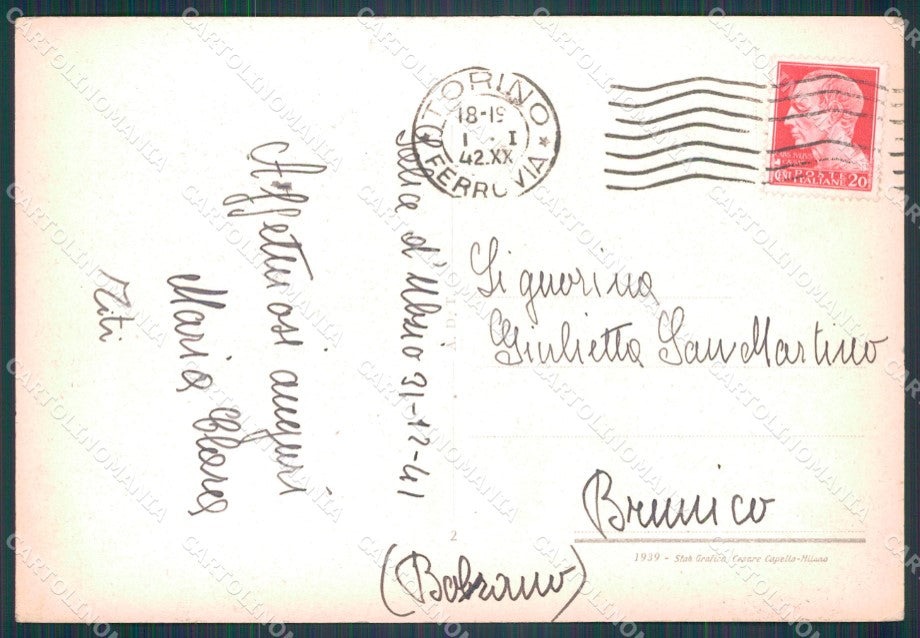 TORINO
18-19
1 · I
42.XX
FERROVIA
POSTE
ITALIANE 20
d'Ulzio 31-12-41
Affettuosi auguri
Maria Clara
Titi
Signorina
Giulietta San Martino
Brunico
(Bolzano)
2
1939 - Stab Grafico Cesare Capello-Milano
CARTOLINOMANIA